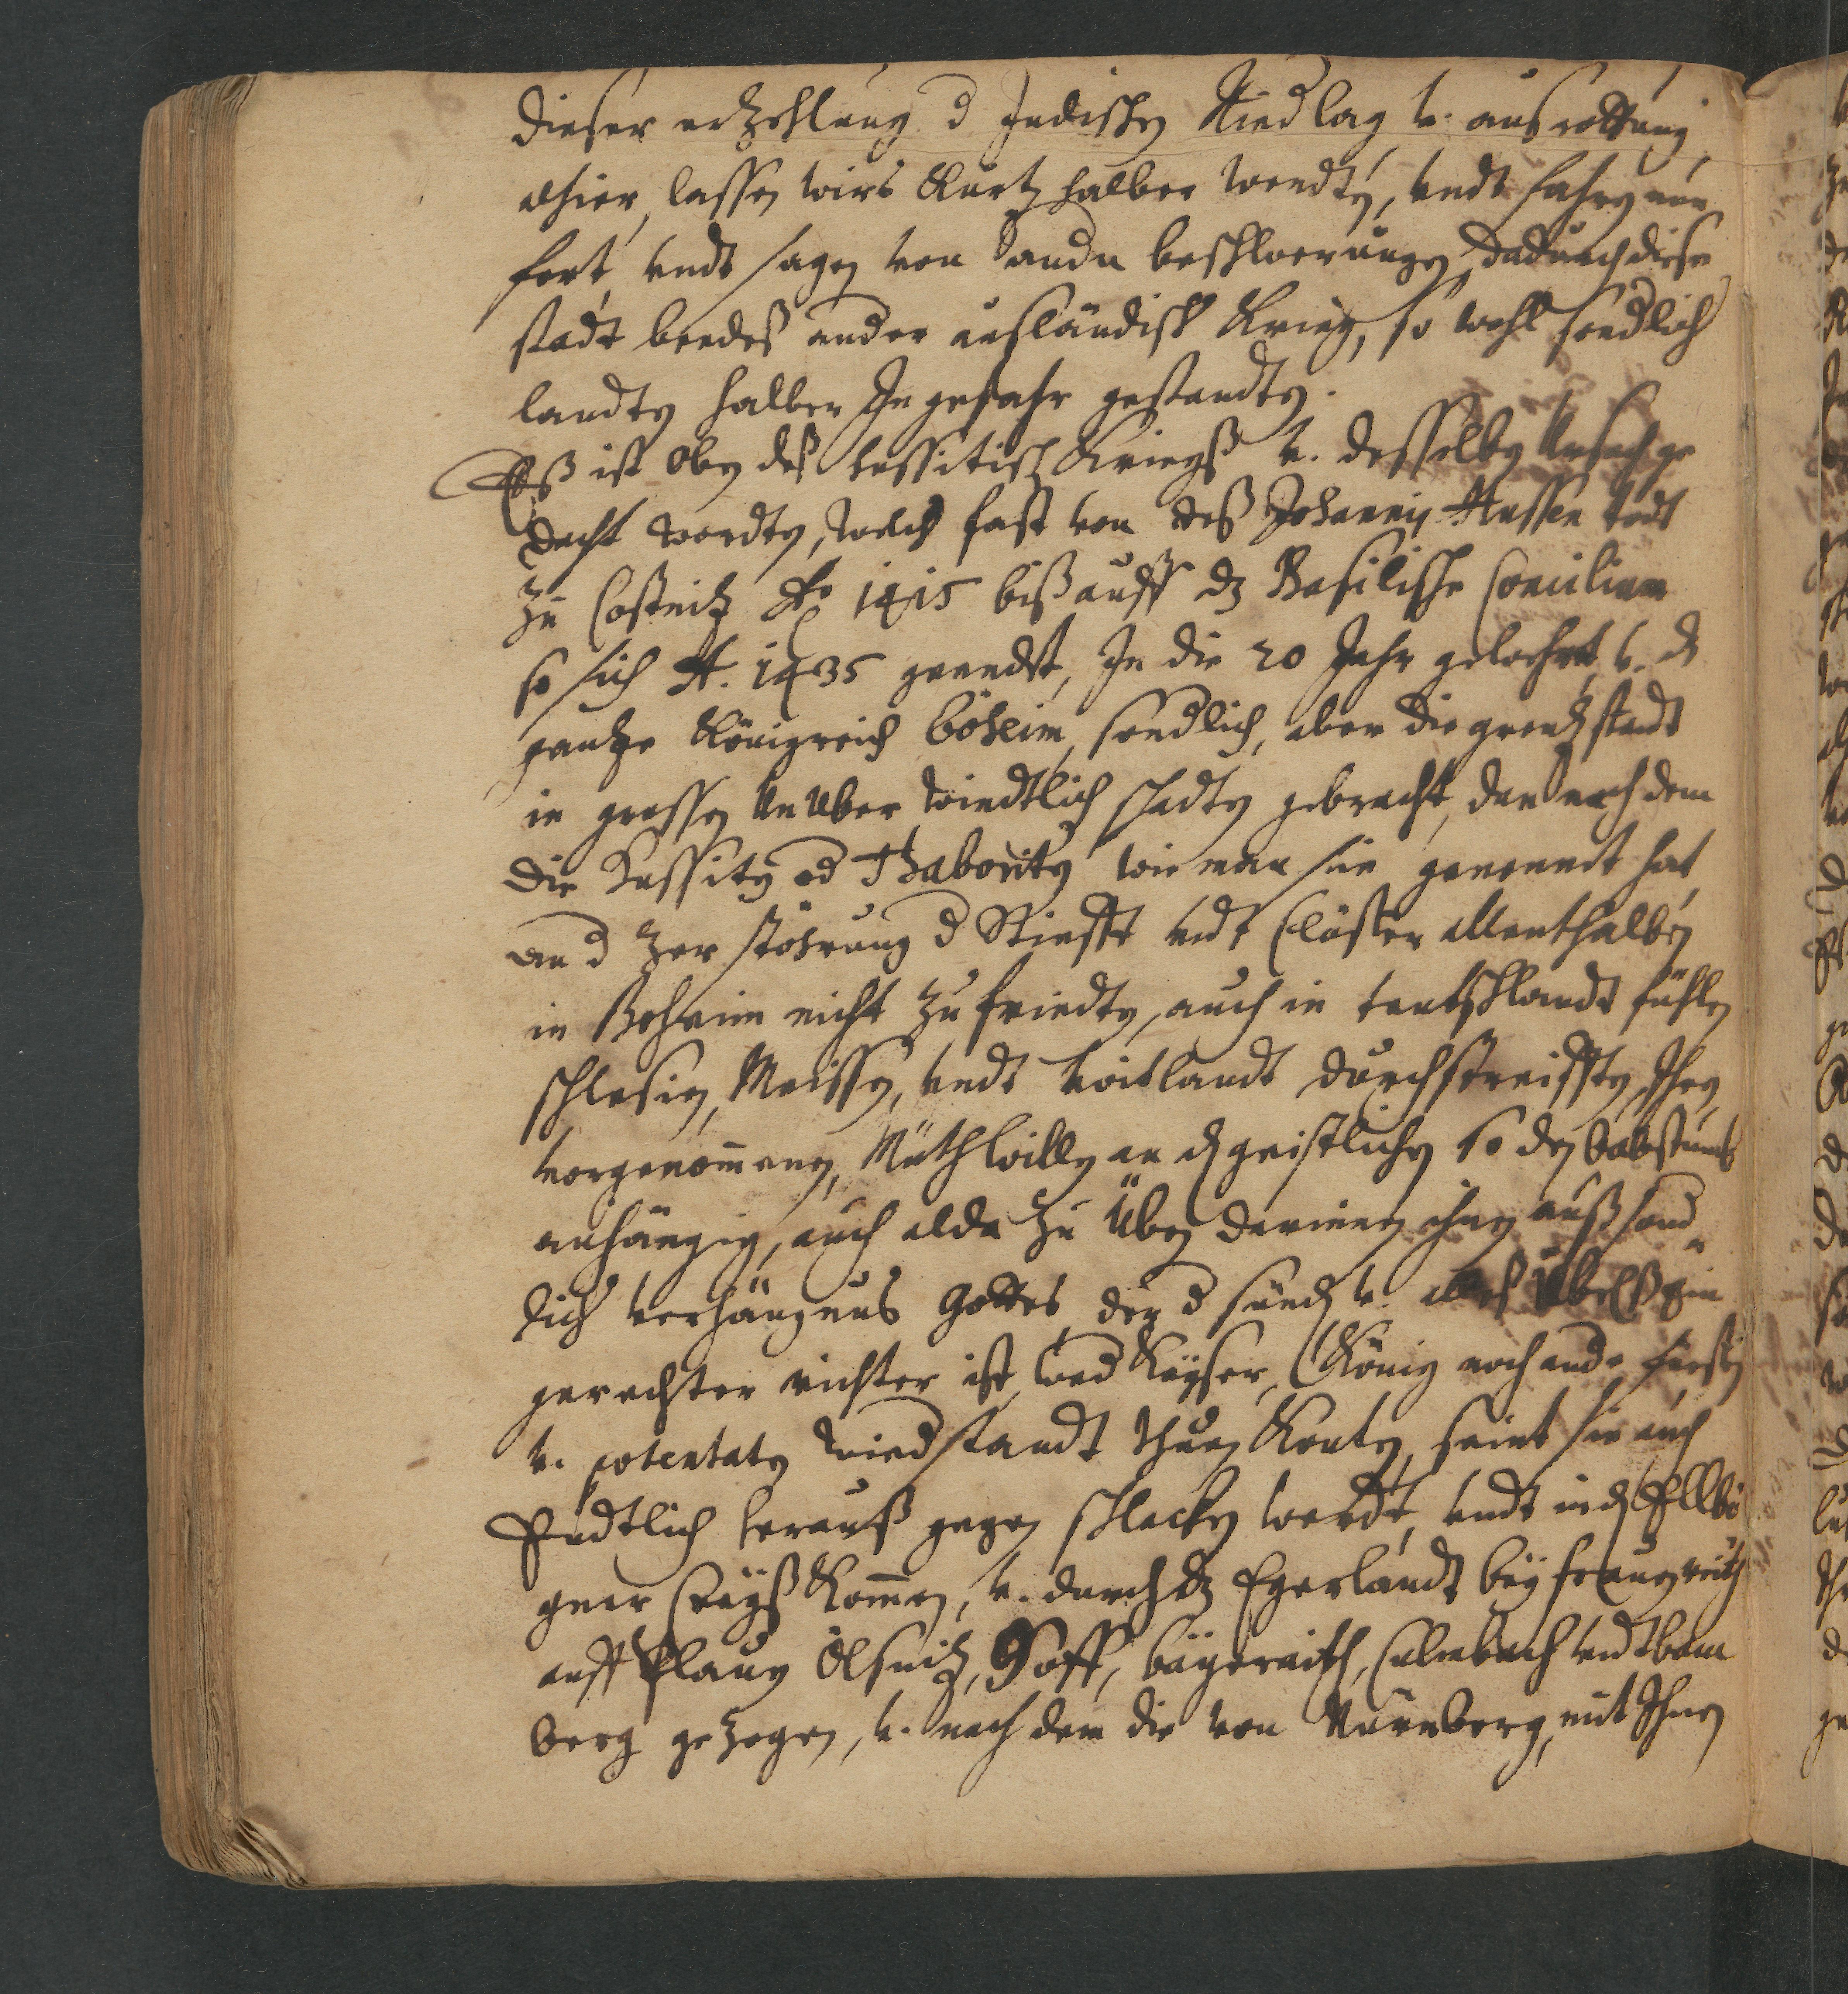 dieser erzehlung d Judischen Niedlag v. ausrottung
alhier, lassen wirs Kurtz halber wendten, vndt fahren nun
fort, vndt sagen von andn beschwerungen, dadurch diese
stadt beedes ander ausländisch Krieg, so wohl sondlich
landten halber In gefahr gestandten.
Eß ist oben deß hussitisch Kriegß v. desselben Vrsach ge
dacht wordten, welch fast von deß Johannis Hussen todt
Zu Costnitz Ao 1415 biß auff dz Basilische Concilium
so sich A. 1435 geendet, In die 20 Jahr gewehret, v. dz
gantze Königreich böheim, sondlich, aber die grentz stadt
in grossen Vnuber windtlich schadten gebracht, dan nach dem
die Hussiten od Thaboriten wie man sie genennet hat
an d Zerstöhrung d Stiefft vndt Clöster allenthalben
in Boheim nicht Zu friedten, auch in teutschlandt fühlen
schlesien, Meissen, vndt Voitlandt durchstreifften, Ihren
vorgenommenen, Muthwillen an dn geistlichen so den babstumb
anhängig, auch alda Zu Üben darinnen ihnen auß sond
lich verhängnus Gottes, der d sündn v. alles Übelß ein
gerechter richter ist, wed Keyser, König noch ande fürsten
v. potentaten wiedstandt thuen Konten, seint sie auch
Endtlich herauß gegen schlacken werdt, vndt in dn Ellbo
gner Creyß Kommen, v. durch dz Egerlandt bey frauenreuth
auff Plauen Ölsnitz, Hoff, baÿerreith, Culmbach vndt bam
berg gezogen, v. nach dem die von Nürnberg, mit Ihnen